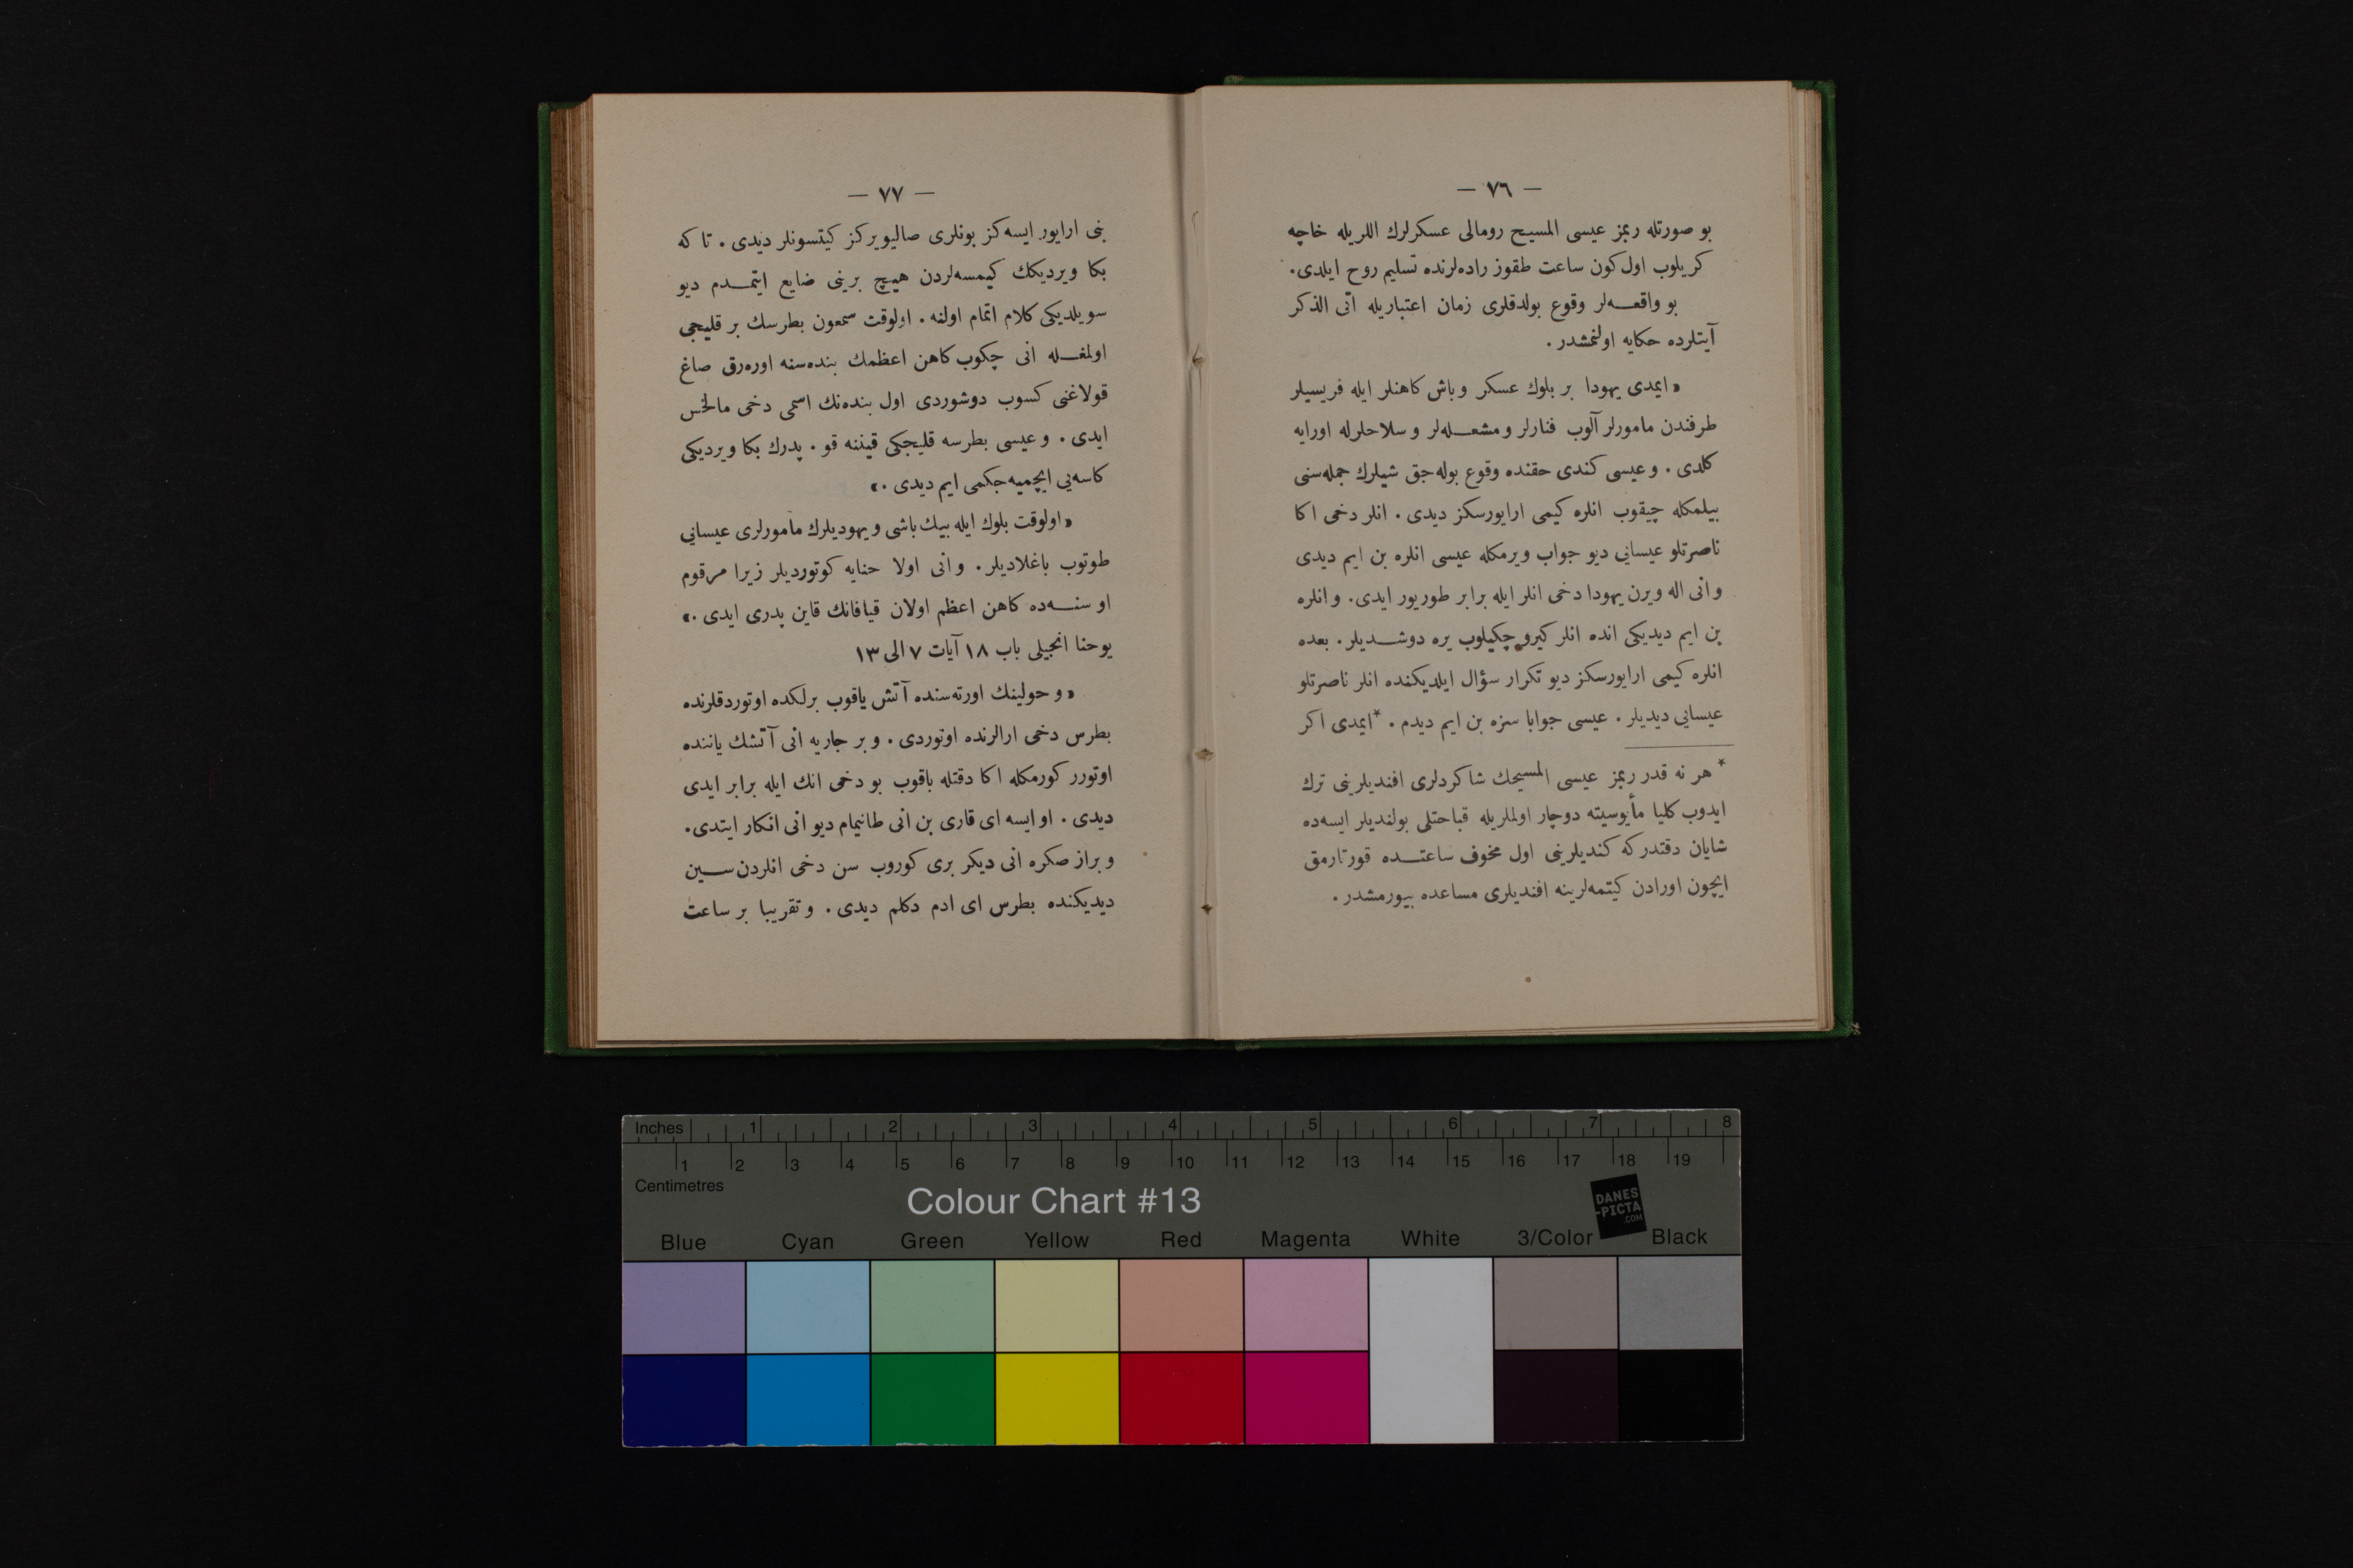 — ٧٦ —
بو صورتله ربمز عیسی المسیح رومالی عسکرلرك اللریله خاچه
کریلوب اول کون ساعت طقوز راده‌لرنده تسلیم روح ایلدی.
بو واقعه‌لر وقوع بولدقلری زمان اعتباریله آتی الذکر
آیتلرده حکایه اولنمشدر .
« ایمدی یهودا بر بلوك عسکر و باش کاهنلر ایله فریسیلر
طرفندن مامورلر آلوب فنارلر و مشعله‌لر و سلاحلرله اورایه
کلدی . و عیسی کندی حقنده وقوع بوله‌جق شیلرك جمله‌سنی
بیلمکله چیقوب انلره کیمی ارایورسکز دیدی . انلر دخی اکا
ناصرتلو عیسایی دیو جواب ویرمکله عیسی انلره بن ایم دیدی
و انی اله ویرن یهودا دخی انلر ایله برابر طوریور ایدی. و انلره
بن ایم دیدیکی انده انلر کیرو چکیلوب یره دوشدیلر . بعده
انلره کیمی ارایورسکز دیو تکرار سؤال ایلدیکنده انلر ناصرتلو
عیسایی دیدیلر . عیسی جوابا سزه بن ایم دیدم . *ایمدی اکر
* هر نه قدر ربمز عیسی المسیحك شاکردلری افندیلرینی ترك
ایدوب کلیا مأیوسیته دوچار اولملریله قباحتلی بولندیلر ایسه‌ده
شایان دقتدرکه کندیلرینی اول مخوف ساعتده قورتارمق
ایچون اورادن کیتمه‌لرینه افندیلری مساعده بیورمشدر .
— ٧٧ —
بنی ارایور ایسه‌کز بونلری صالیویرکز کیتسونلر دیدی . تا که
بکا ویردیکك کیمسه‌لردن هیچ برینی ضایع ایتمدم دیو
سویلدیکی کلام اتمام اولنه . اولوقت سمعون بطرسك بر قلیجی
اولمغله انی چکوب کاهن اعظمك بنده‌سنه اوره‌رق صاغ
قولاغنی کسوب دوشوردی اول بنده‌نك اسمی دخی مالخس
ایدی . و عیسی بطرسه قلیجکی قیننه قو . پدرك بکا ویردیکی
کاسه‌یی ایچمیه‌جکمی ایم دیدی .»
« اولوقت بلوك ایله بیك باشی و یهودیلرك مأمورلری عیسایی
طوتوب باغلادیلر . و انی اولا حنایه کوتوردیلر زیرا مرقوم
او سنه‌ده کاهن اعظم اولان قیافانك قاین پدری ایدی .»
یوحنا انجیلی باب ١٨ آیات ٧ الی ١٣
« و حولینك اورته‌سنده آتش یاقوب برلکده اوتوردقلرنده
بطرس دخی ارالرنده اوتوردی . و بر جاریه انی آتشك یاننده
اوتورر کورمکله اکا دقتله باقوب بو دخی انك ایله برابر ایدی
دیدی . او ایسه ای قاری بن انی طانیمام دیو انی انکار ایتدی.
و براز صکره انی دیکر بری کوروب سن دخی انلردن سین
دیدیکنده بطرس ای ادم دکلم دیدی . و تقریبا بر ساعت
Inches 1 2 3 4 5 6 7 8
1 2 3 4 5 6 7 8 9 10 11 12 13 14 15 16 17 18 19
Centimetres
Colour Chart #13
DANES
-PICTA
.COM
Blue Cyan Green Yellow Red Magenta White 3/Color Black